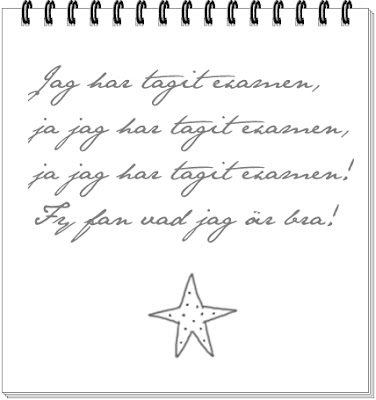 Jag har tagit examen,
ja jag har tagit examen,
ja jag har tagit examen!
Fy fan vad jag är bra!